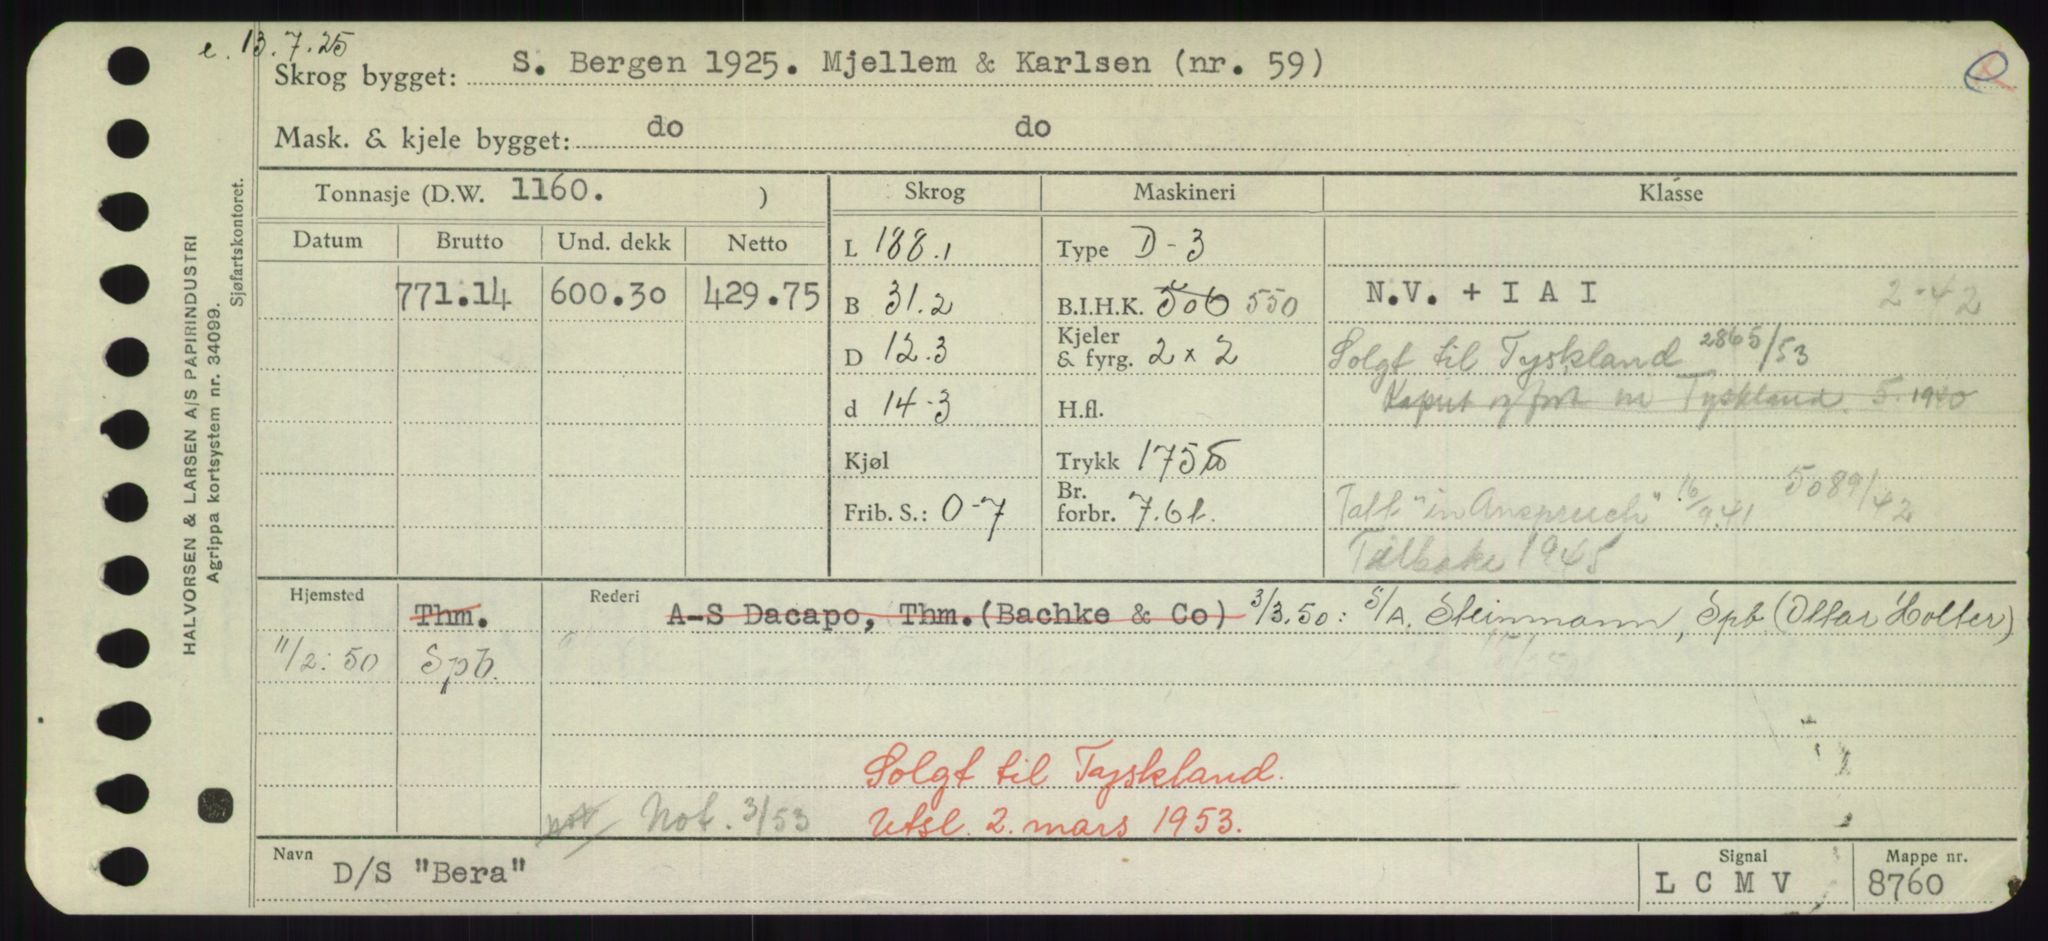 e. 13.7.25
Skrog bygget: S. Bergen 1925. Mjellem & Karlsen (nr. 59)
Mask. & kjele bygget: do do
Tonnasje (D.W. 1160. ) Skrog Maskineri Klasse
Datum Brutto Und. dekk Netto L 188.1 Type D-3
771.14 600.30 429.75 B 31.2 B.I.H.K. 506 550 N.V. + I A I 2-42
D 12.3 Kjeler & fyrg. 2 x 2 Solgt til Tyskland 2865/53
d 14-3 H.fl. Kapret og ført til Tyskland. 5. 1940
Kjøl Trykk 175
Frib. S.: O-7 Br. forbr. 7.6t. Tatt "in Anspruch" 16/9.41 5089/42
Tilbake 1945
Hjemsted Thm. Rederi A-S Dacapo, Thm. (Bachke & Co) 3/3.50: S/A. Steinmann, Spb (Ottar Holter)
11/2: 50 Spb.
Solgt til Tyskland.
not Not. 3/53 Utsl. 2. mars 1953.
Navn D/S "Bera" Signal L C M V Mappe nr. 8760
HALVORSEN & LARSEN A/S PAPIRINDUSTRI
Agrippa kortsystem nr. 34099.
Sjøfartskontoret.